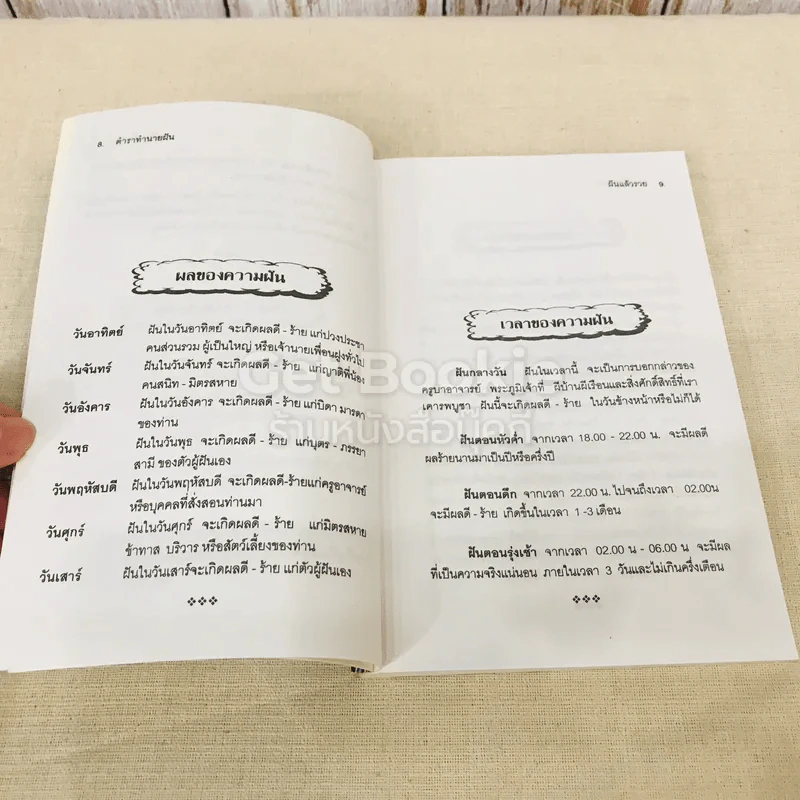 8. ตำราทำนายฝัน
ผลของความฝัน
วันอาทิตย์ ฝันในวันอาทิตย์ จะเกิดผลดี - ร้าย แก่ปวงประชา
คนส่วนรวม ผู้เป็นใหญ่ หรือเจ้านายเพื่อนฝูงทั่วไป
วันจันทร์ ฝันในวันจันทร์ จะเกิดผลดี - ร้าย แก่ญาติพี่น้อง
คนสนิท - มิตรสหาย
วันอังคาร ฝันในวันอังคาร จะเกิดผลดี - ร้าย แก่บิดา มารดา
ของท่าน
วันพุธ ฝันในวันพุธ จะเกิดผลดี - ร้าย แก่บุตร - ภรรยา
สามี ของตัวผู้ฝันเอง
วันพฤหัสบดี ฝันในวันพฤหัสบดี จะเกิดผลดี-ร้ายแก่ครูอาจารย์
หรือบุคคลที่สั่งสอนท่านมา
วันศุกร์ ฝันในวันศุกร์ จะเกิดผลดี - ร้าย แก่มิตรสหาย
ข้าทาส บริวาร หรือสัตว์เลี้ยงของท่าน
วันเสาร์ ฝันในวันเสาร์จะเกิดผลดี - ร้าย แก่ตัวผู้ฝันเอง
ฝันแล้วรวย 9.
เวลาของความฝัน
ฝันกลางวัน ฝันในเวลานี้ จะเป็นการบอกกล่าวของ
ครูบาอาจารย์ พระภูมิเจ้าที่ ผีบ้านผีเรือนและสิ่งศักดิ์สิทธิ์ที่เรา
เคารพบูชา ฝันนี้จะเกิดผลดี - ร้าย ในวันข้างหน้าหรือไม่ก็ได้
ฝันตอนหัวค่ำ จากเวลา 18.00 - 22.00 น. จะมีผลดี
ผลร้ายนานมาเป็นปีหรือครึ่งปี
ฝันตอนดึก จากเวลา 22.00 น. ไปจนถึงเวลา 02.00น
จะมีผลดี - ร้าย เกิดขึ้นในเวลา 1 -3 เดือน
ฝันตอนรุ่งเช้า จากเวลา 02.00 น - 06.00 น จะมีผล
ที่เป็นความจริงแน่นอน ภายในเวลา 3 วันและไม่เกินครึ่งเดือน
Get Bookie
ร้านหนังสือบุ๊คดี